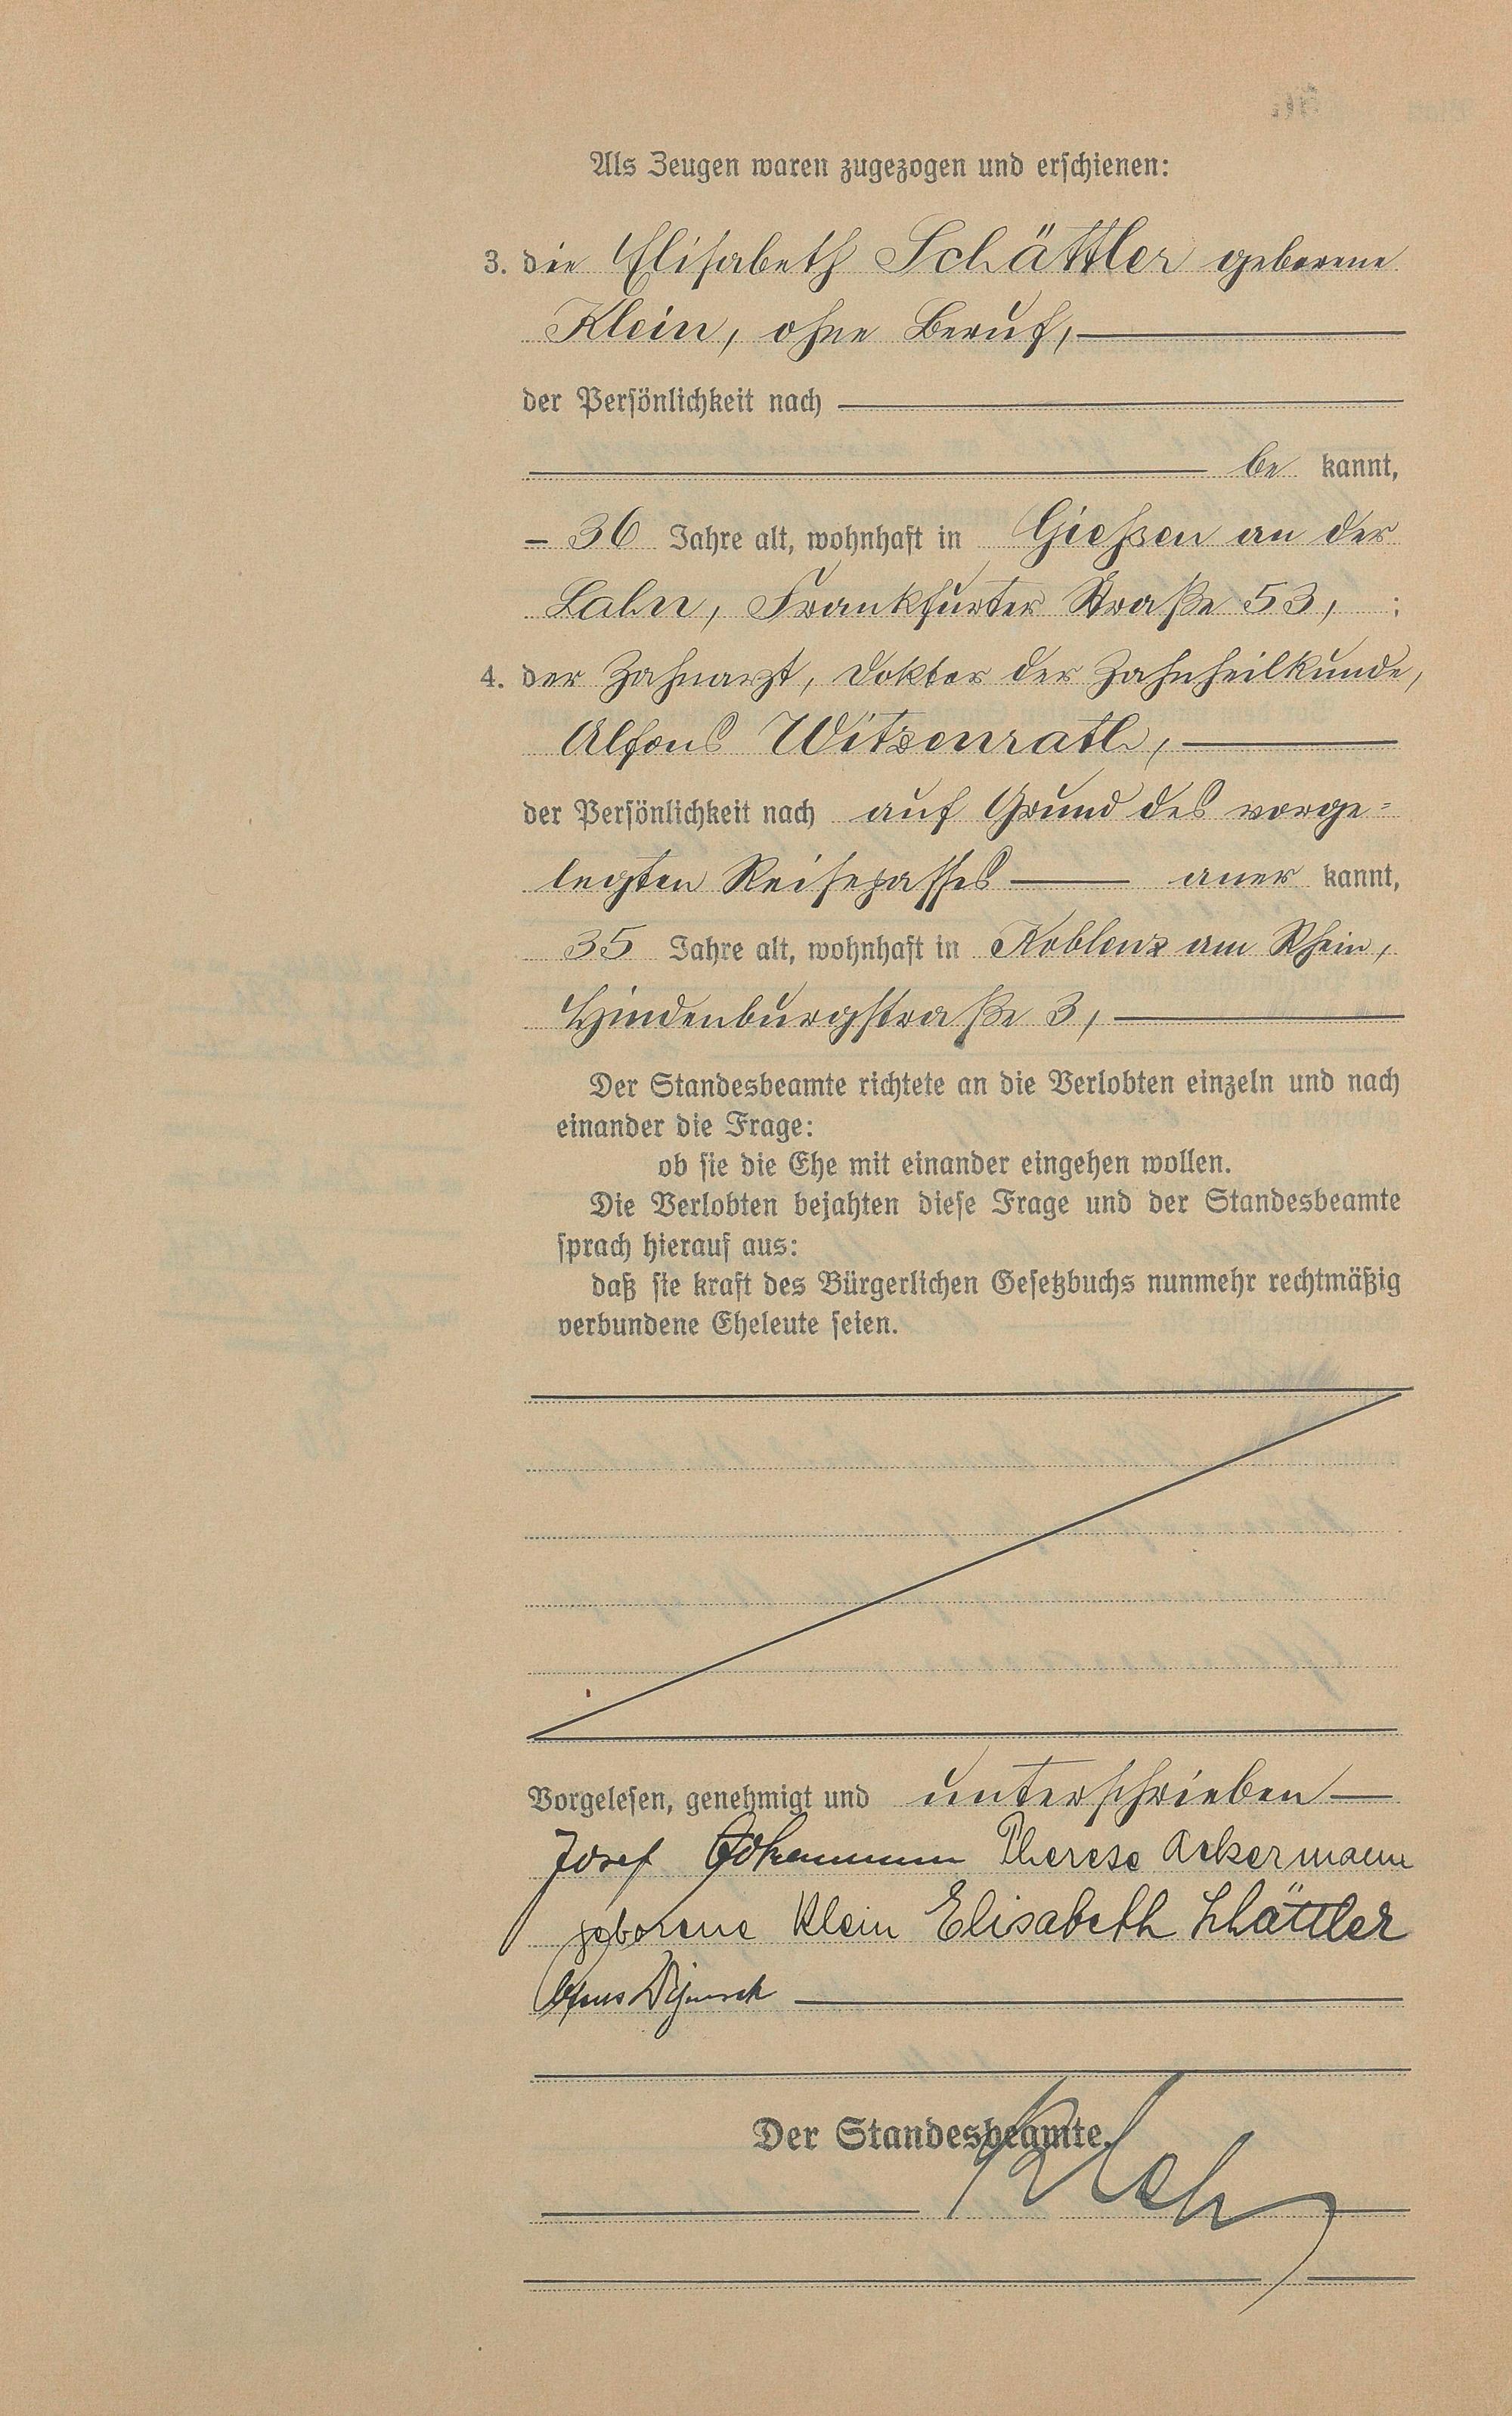 Als Zeugen waren zugezogen und erschienen:
3. die Elisabeth Schättler geborene
Klein, ohne Beruf,
der Persönlichkeit nach
be kannt,
36 Jahre alt, wohnhaft in Giessen an der
Lahn, Frankfurter Straße 53, ;
4. der Zahnarzt, Doktor der Zahnheilkunde,
Alfons Witzenrath,
der Persönlichkeit nach auf Grund des vorge=
legten Reisepasses aner kannt,
35 Jahre alt, wohnhaft in Koblenz am Rhein,
Hindenburgstraße 3,
Der Standesbeamte richtete an die Verlobten einzeln und nach
einander die Frage:
ob sie die Ehe mit einander eingehen wollen.
Die Verlobten bejahten diese Frage und der Standesbeamte
sprach hierauf aus:
daß sie kraft des Bürgerlichen Gesetzbuchs nunmehr rechtmäßig
verbundene Eheleute seien.
Vorgelesen, genehmigt und unterschrieben
Josef Ackermann Therese Ackermann
geborene Klein Elisabeth Schättler
Alfons
Der Standesbeamte.